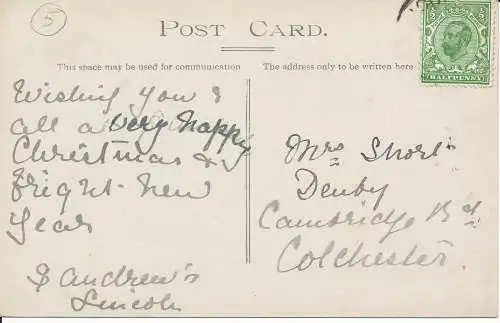 5
POST CARD.
This space may be used for communication
The address only to be written here
HALFPENNY
Wishing you &
all a very happy
Christmas &
bright New
Year
S Andrew's
Lincoln
Mrs Short
Denby
Cambridge Rd.
Colchester.